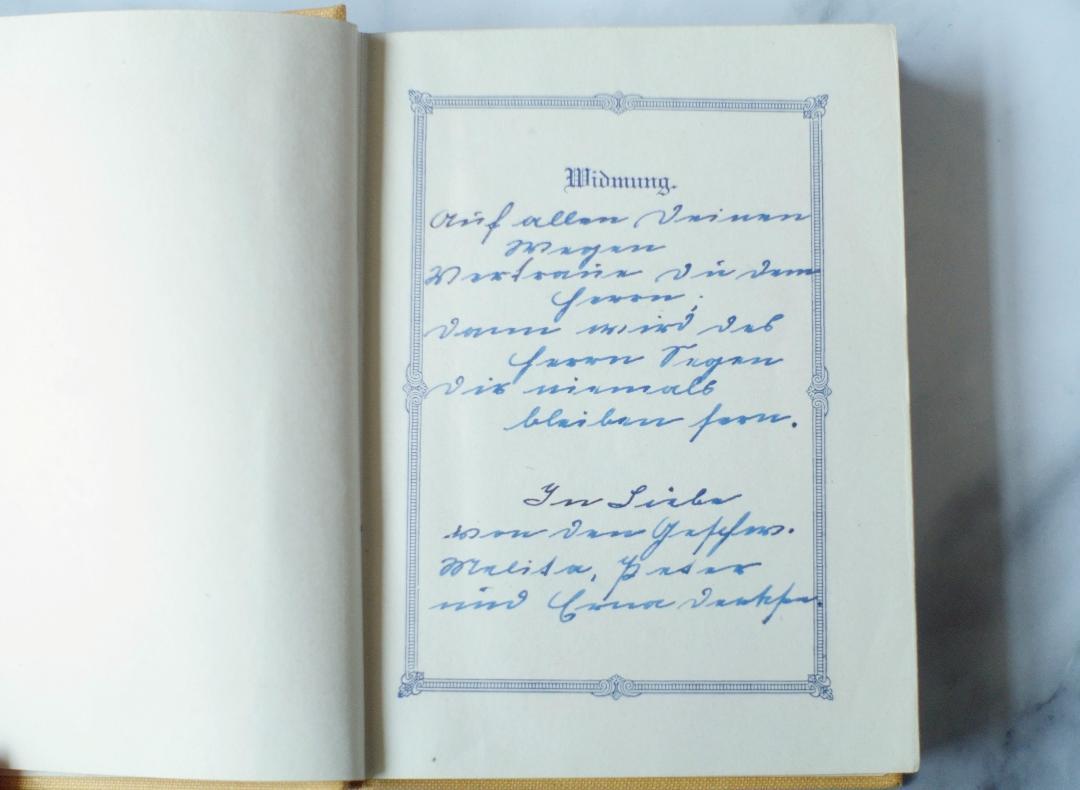 Widmung.
Auf allen Deinen
Wegen
Vertraue Du dem
Herrn,
dann wird des
Herrn Segen
Dir niemals
bleiben fern.
In Liebe
von den Geschw.
Melita, Peter
und Erna